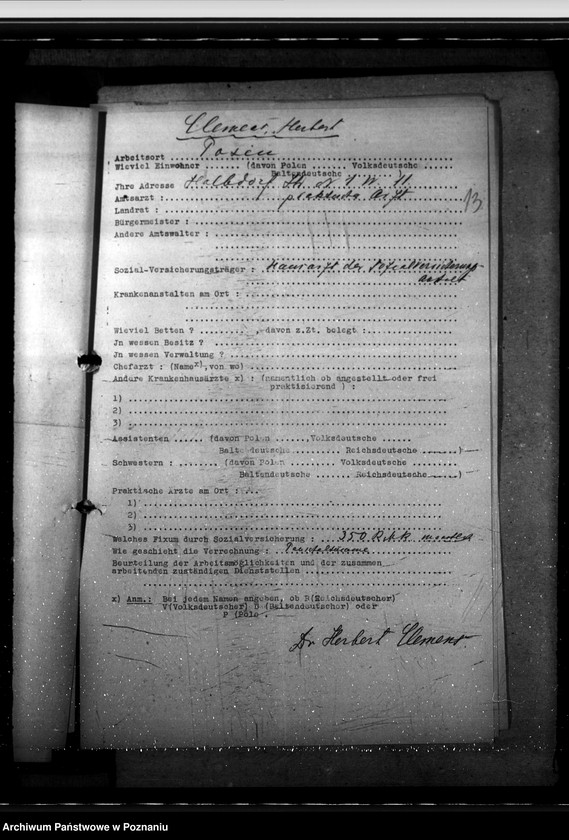 Clemens, Herbert
Arbeitsort .... Posen ....
Wieviel Einwohner ....... (davon Polen ....... Volksdeutsche ....
Baltendeutsche
Jhre Adresse
Amtsarzt : prakt. Arzt
13
Landrat :
Bürgermeister :
Andere Amtswalter :
Sozial-Versicherungsträger : der
Krankenanstalten am Ort :
Wieviel Betten ? ........., davon z.Zt. belegt :
Jn wessen Besitz ?
Jn wessen Verwaltung ?
Chefarzt : (Name x), von wo)
Andere Krankenhausärzte x) : (namentlich ob angestellt oder frei
praktizierend ) :
1)
2)
3)
Assistenten ...... (davon Polen ......, Volksdeutsche ......
Baltendeutsche ........ Reichsdeutsche .......)
Schwestern : ....... (davon Polen ........ Volksdeutsche ......
Baltendeutsche ....... Reichsdeutsche .......)
Praktische Ärzte am Ort : ...
1)
2)
3)
Welches Fixum durch Sozialversicherung : 350 R.M. monatlich
Wie geschieht die Verrechnung : Pauschalsumme
Beurteilung der Arbeitsmöglichkeiten und der zusammen
arbeitenden zuständigen Dienststellen
x) Anm.: Bei jedem Namen angeben, ob R(Reichsdeutscher)
V(Volksdeutscher) B (Baltendeutscher) oder
P (Pole .
Dr Herbert Clemens.
Archiwum Państwowe w Poznaniu